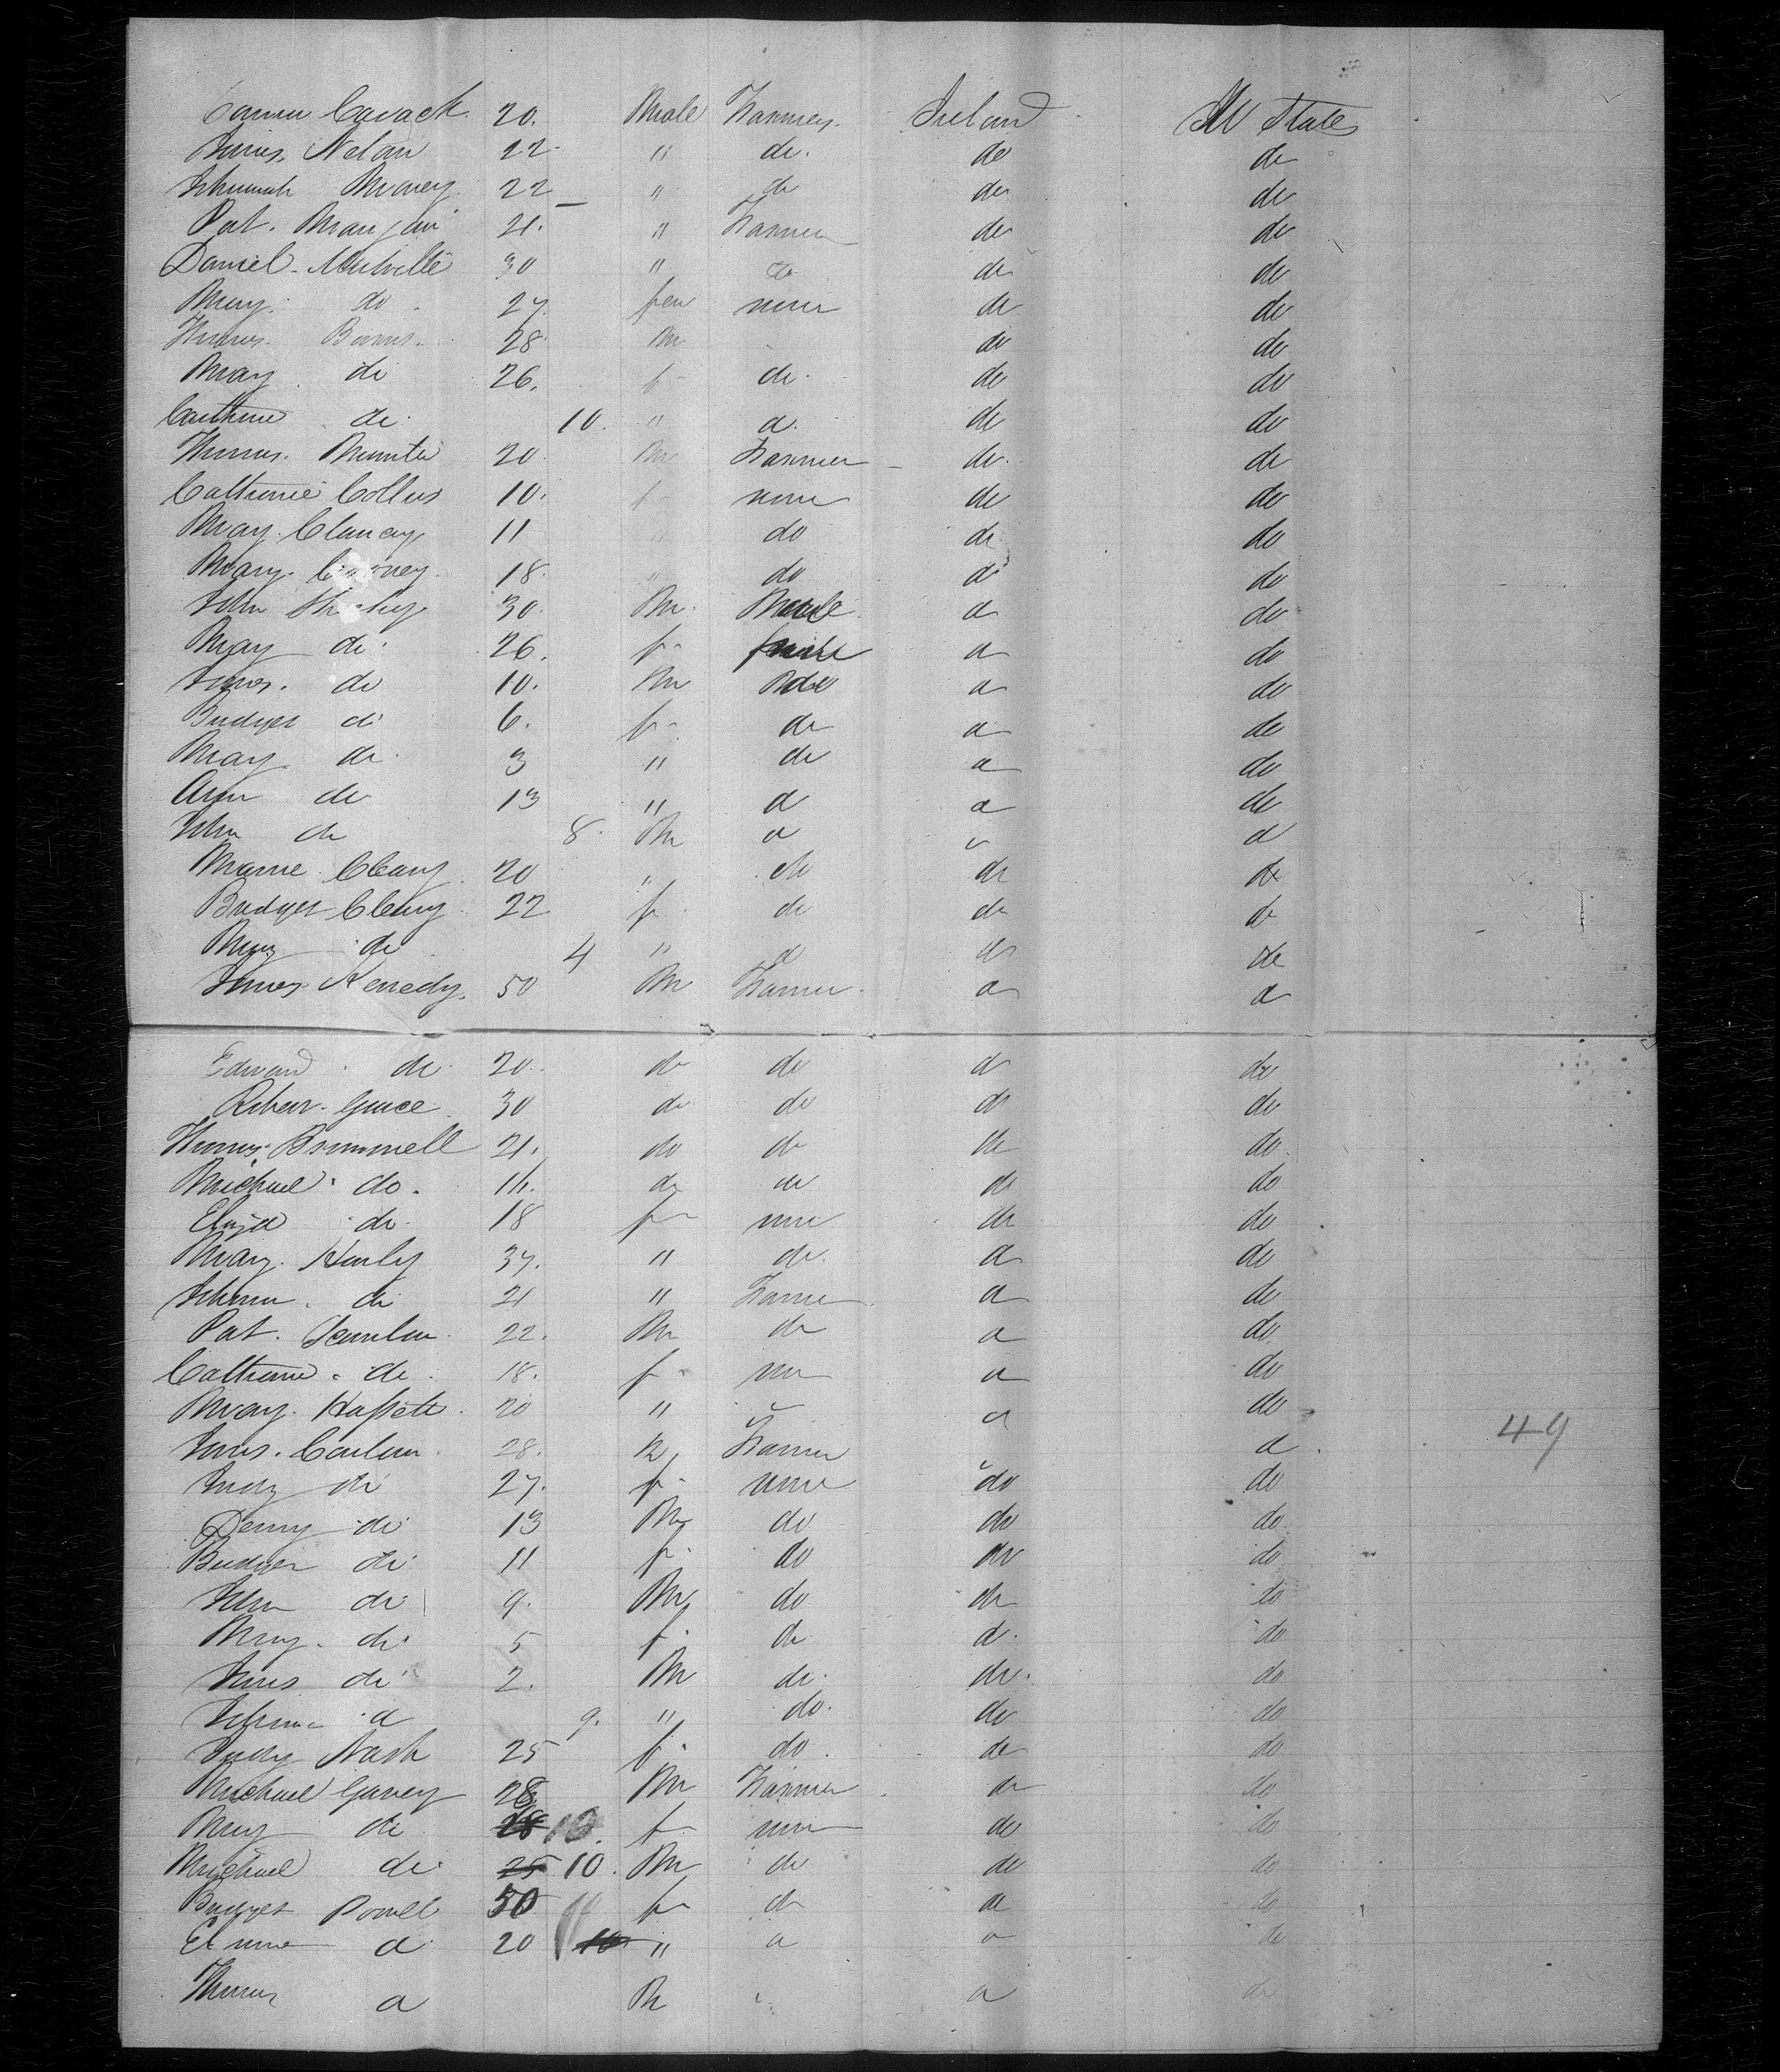 Cavack 20. Male Farmer. Ireland U States
James Nolan 22 " do. do do
Mary 22 " do do do
Pat. Mangan 21. " Farmer do do
Daniel Mulville 30 " do do do
Mary do 27 fem none do do
Thomas Burns 28 M do do
Mary do 26. f do. do do
Catherine do 10. " do. do do
Thomas 20 M Farmer do. do
Catherine Collins 10. f none do do
Mary Clancy 11 " do do do
Mary 18. " do do do
John 30. M. do do
Mary do 26. f do do
James. do 10. M do do do
Bridget do 6. f do do do
Mary do 3 " do do do
Ann do 13 " do do do
John do 8. M do do do
Cleary 20 " do do do
Bridget Cleary 22 f do do do
Mary do 4 " do do do
James Kenedy. 50 M Farmer do do
Edward do 20. do do do do
Robert Grace 30 do do do do
Thomas Brummell 21. do do do do
Michael do. 16. do do do do
Eliza do 18 f none do do
Mary. Hurly 37. " do. do do
Johanna do 21 " Farmer do do
Pat. Scanlan 22. M do do do
Catherine do 18. f none do do
Mary. Hassett 20 " " do do
James. Conlan 28. M Farmer " do
Judy do 27. f none do do
Denny do 13 M do do do
Bridget do 11 f do do do
John do 9. M do do do
Mary. do 5 f do do do
James do 2. M do do. do
Johanna do 9. " do. do do
Judy Nash 25 f do. do do
Michael Garvey 28 M Farmer do do
Mary do 28 10. f none do do
Michael do 25 10. M do do do
Bridget Powell 50 f do do do
do 20 10 " do do do
Thomas do M " do do
49